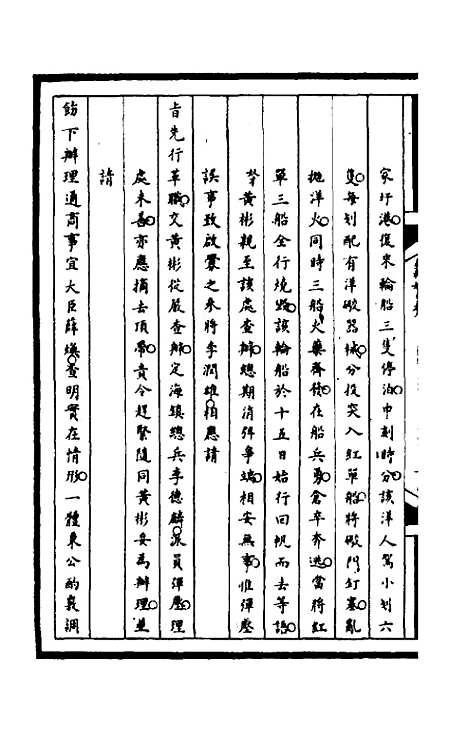 家圩港。復來輪船三隻停泊中刻時分。該洋人駕小划六
隻。每划配有洋礮器械。分投突入紅單船。將礮門釘塞。亂
拋洋火。同時三船火藥齊發。在船兵勇。倉卒奔逃。當將紅
單三船全行燒燬。該輪船於十五日始行回帆而去等語。
黃彬親至該處查辦。總期消弭事端。相安無事。惟彈壓
誤事致啟釁之參將李潤雄。相應請
旨先行革職。交黃彬從嚴查辦。定海鎮總兵李德麟。派員彈壓。理
處未善。亦應摘去頂帶。責令趕緊隨同黃彬妥為辦理。並
請
飭下辦理通商事宜大臣薛煥。查明實在情形。一體秉公酌議調